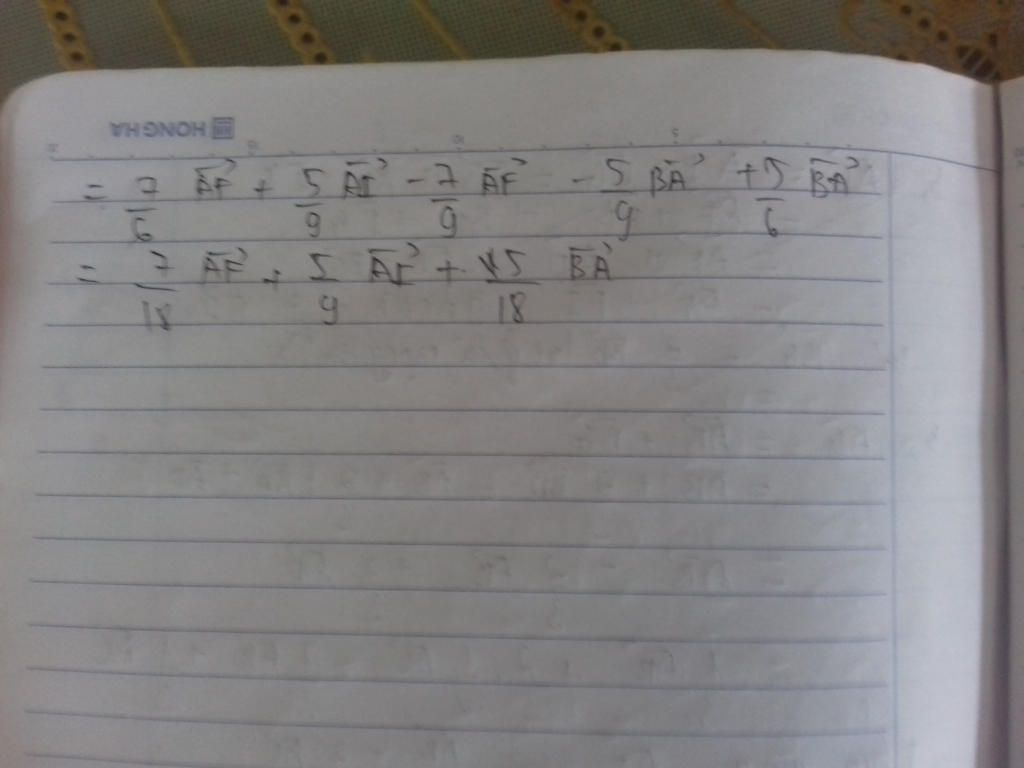 HONG HA
= 7/6 AF⃗ + 5/9 AI⃗ - 7/9 AF⃗ - 5/9 BA⃗ + 5/6 BA⃗
= 7/18 AF⃗ + 5/9 AI⃗ + 5/18 BA⃗